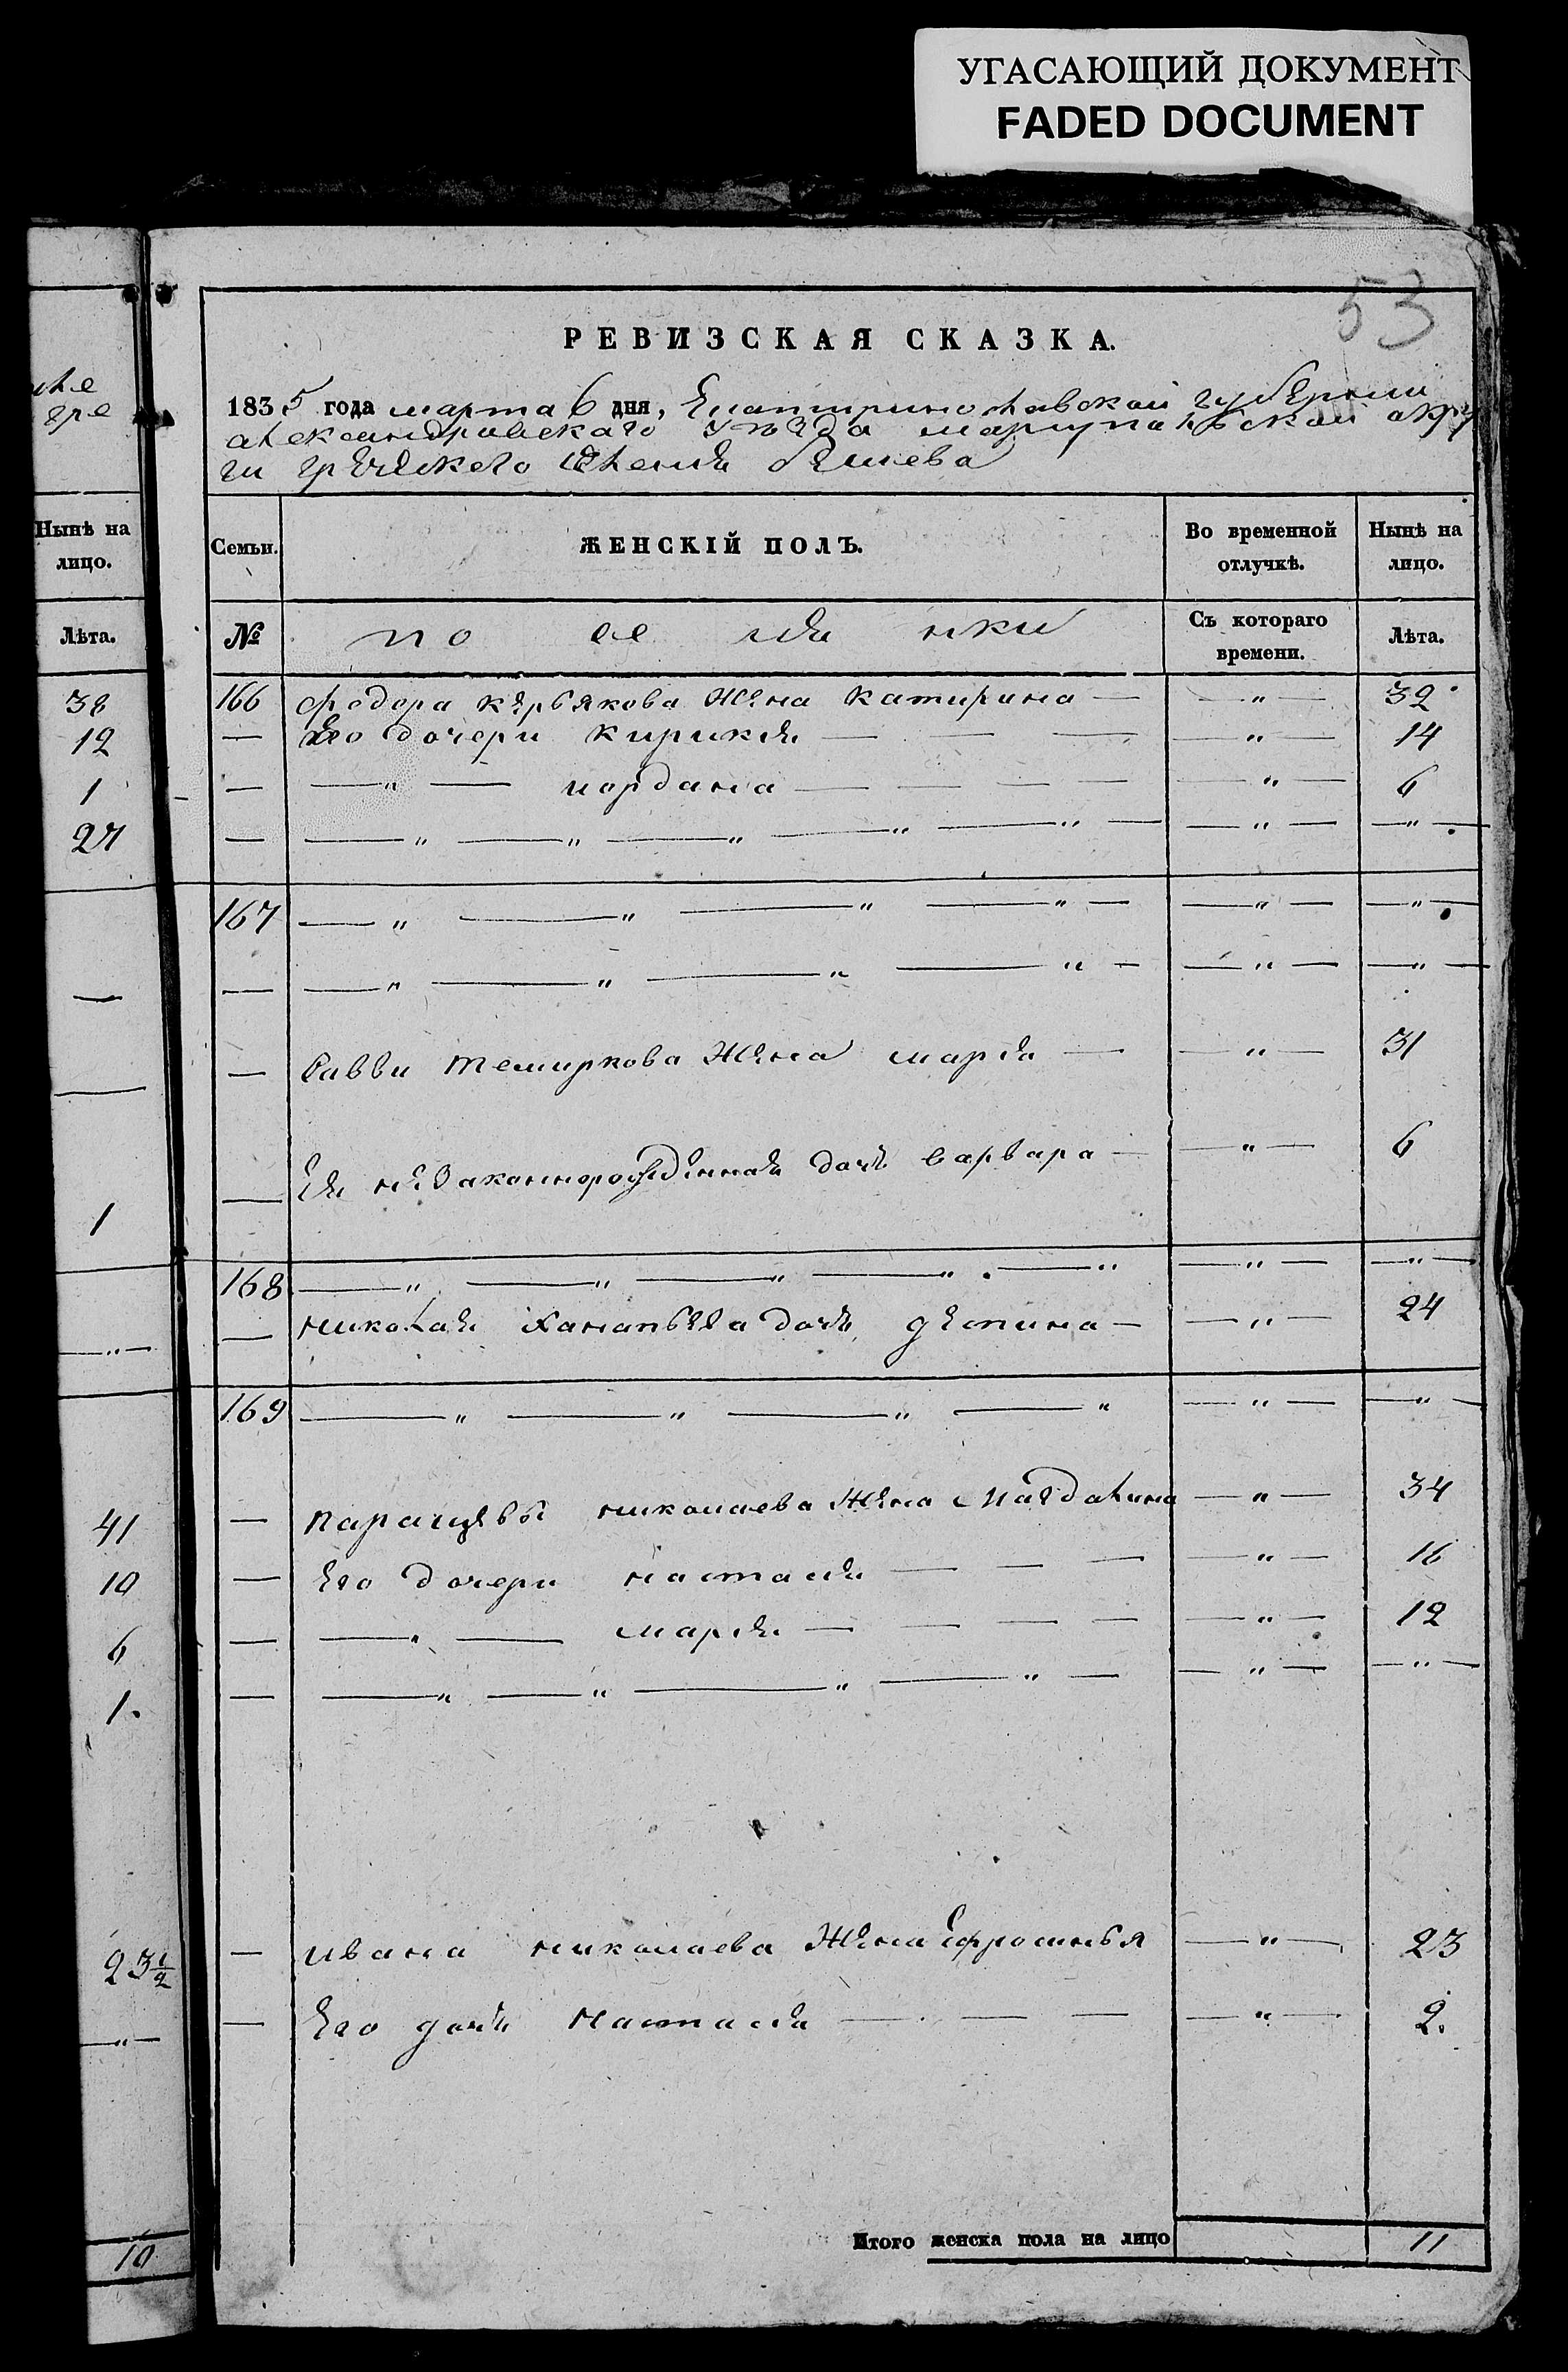 УГАСАЮЩИЙ ДОКУМЕНТ
FADED DOCUMENT
53
РЕВИЗСКАЯ СКАЗКА.
1835 года марта 6 дня, Екатиринославской губернии
александравскаго уезда мариупальской окру
ги греческого селения бешева
Нынѣ на лицо.
Семьи. ЖЕНСКІЙ ПОЛЪ. Во временной отлучкѣ. Нынѣ на лицо.
Лѣта. № поселянки Съ котораго времени. Лѣта.
38 166 Федора кербякова жена катирина — — " — 32
12 — Его дочери кирикия — — — — " — 14
1 — — " — иордана — — — — " — 6
27 — — " — " — " — " — " — — " — — " —
167 — " — " — " — " — — " — — " —
— — " — " — " — " — — " — — " —
— Савви темиркова жена мария — — " — 31
1 — Ея незаконнорожденная дочь варвара — — " — 6
168 — " — " — " — " — " — " — — " —
— " — — николая ханапьева дочь деспина — — " — 24
169 — " — " — " — " — " — — " —
41 — параскевы николаева жена Магдалина — " — 34
10 — Его дочери настасия — — — — " — 16
6 — — " — мария — — — — " — 12
1. — — " — " — " — " — — " — — " —
23½ — ивана николаева жена Ефросинья — " — 23
— " — — Его дочь настасия — — — — " — 2.
Итого женска пола на лицо 11
10